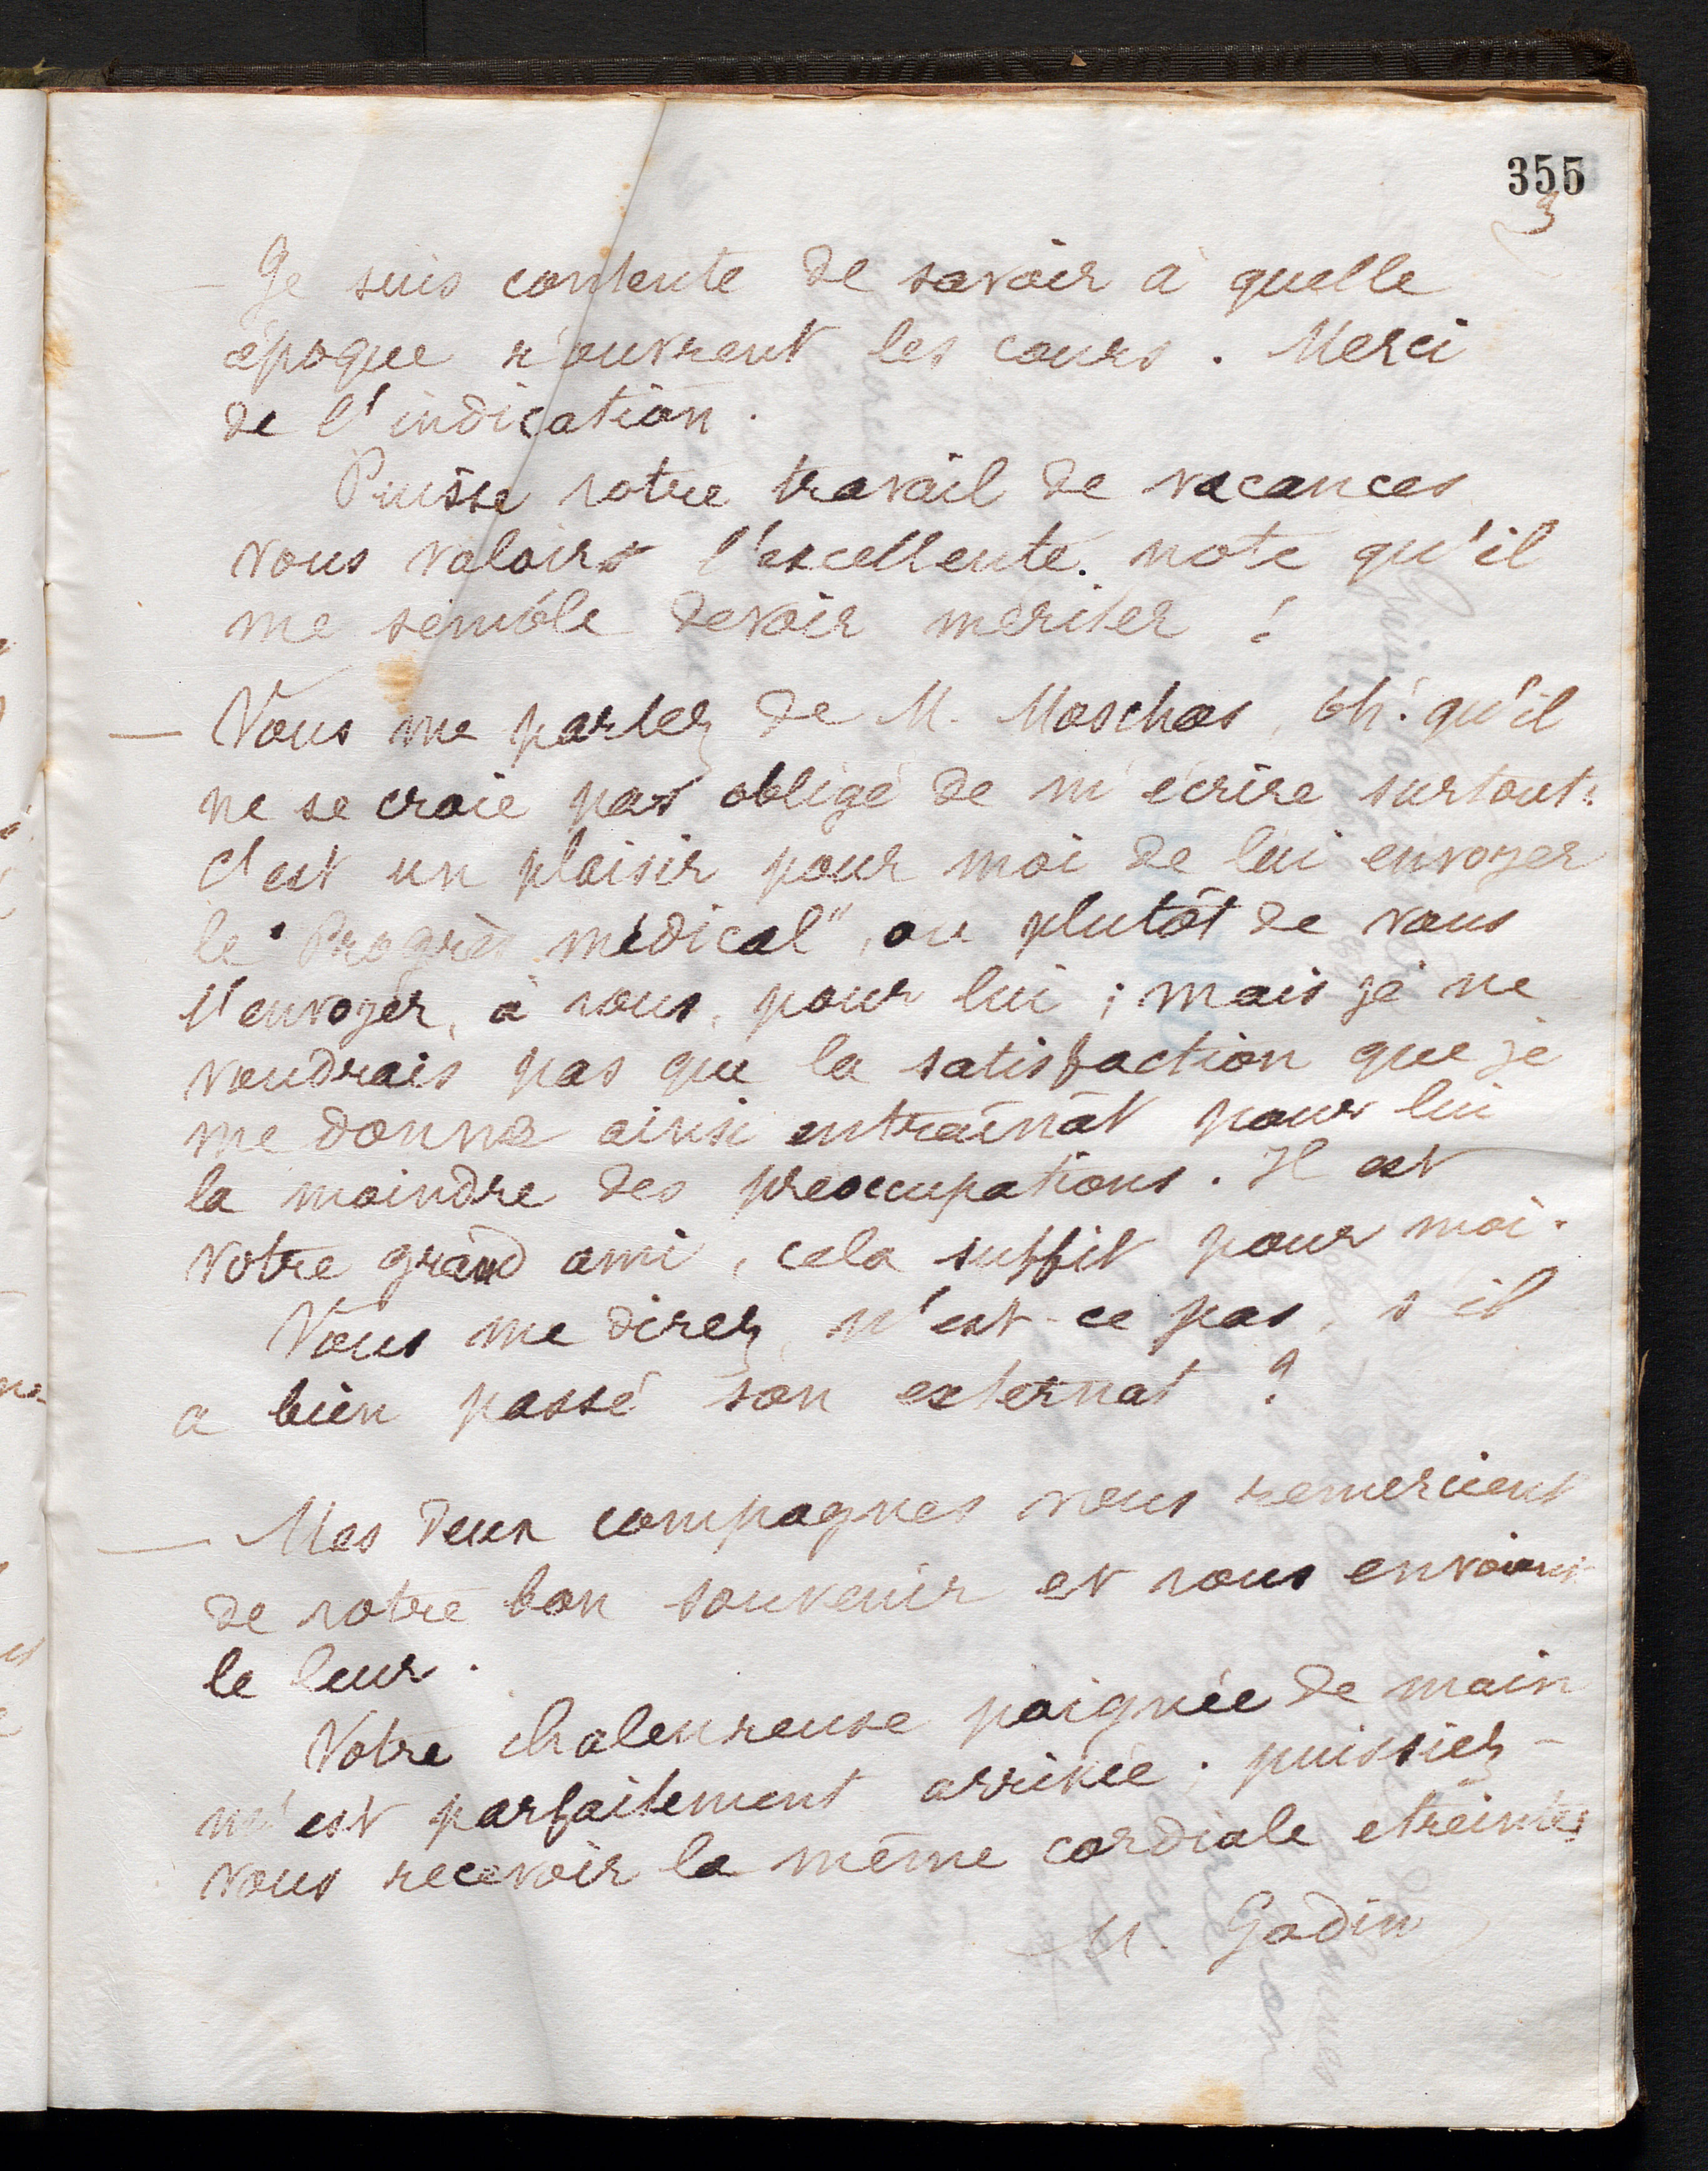 355
3
— Je suis contente de savoir à quelle
époque s'ouvrent les cours. Merci
de l'indication.
Puisse votre travail de vacances
vous valoir l'excellente note qu'il
me semble devoir mériter !
— Vous me parlez de M. Moschos, oh ! qu'il
ne se croie pas obligé de m'écrire surtout :
c'est un plaisir pour moi de lui envoyer
le "Progrès médical", ou plutôt de vous
l'envoyer, à vous, pour lui ; mais je ne
voudrais pas que la satisfaction que je
me donne ainsi entraînât pour lui
la moindre des préoccupations. Il est
votre grand ami, cela suffit pour moi.
Vous me direz, n'est-ce pas, s'il
a bien passé son externat ?
— Mes deux compagnes vous remercient
de votre bon souvenir et vous envoient
le leur.
Votre chaleureuse poignée de main
m'est parfaitement arrivée ; puissiez-
vous recevoir la même cordiale étreinte,
M. Godin